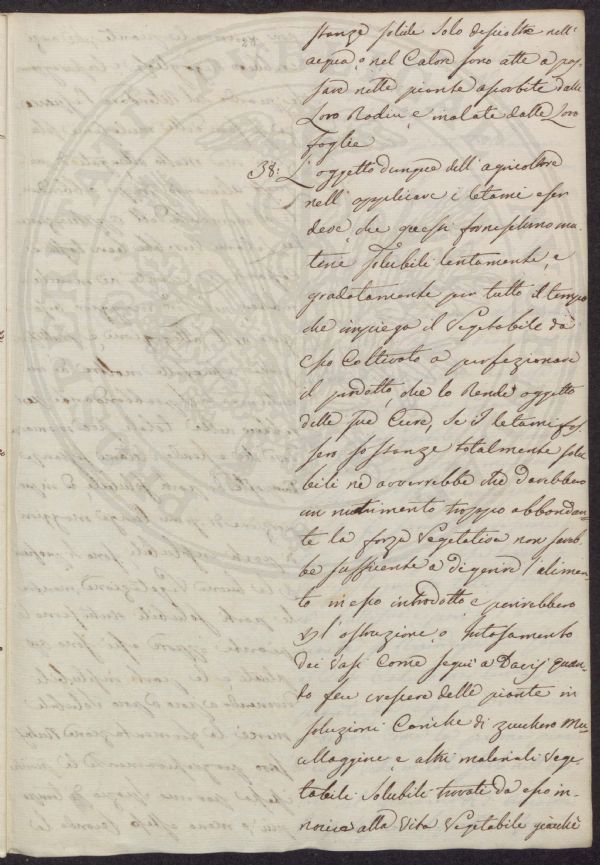 stanze solide solo disciolte nell'
acqua, o nel Calore sono atte a pas-
sare nelle piante assorbite dalle
Loro Radici, e inalate dalle Loro
foglie
38: L'oggetto dunque dell'agricoltore
nell'applicare i letami esser
deve, che questi fornischino ma-
terie solubili lentamente, e
gradatamente per tutto il tempo
che impiega il Vegetabile da
esso Coltivato a perfezionare
il prodotto, che lo Rende oggetto
delle sue Cure, Se I letami fos
sero sostanze totalmente solu
bili ne avverrebbe che darebbero
un nutrimento troppo abbondan-
te la forza Vegetativa non sareb-
be sufficiente a digerire l'alimen-
to in esso introdotto e perirebbero
l'ostruzione, o intasamento
dei vasi Come seguì a Davis quan-
do fece crescere delle piante in
soluzioni Cariche di zucchero Mu-
cillaggine, e altri materiali Vege-
tabili Solubili trovate da esso in-
nocive alla Vita Vegetabile giacchè